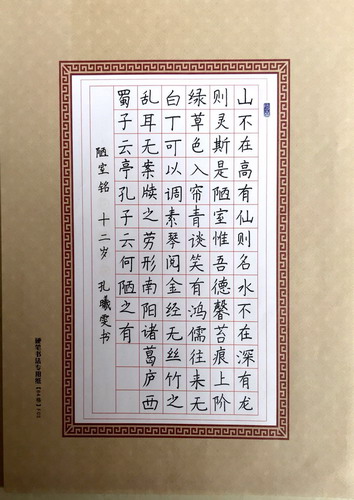 山不在高有仙则名水不在深有龙
则灵斯是陋室惟吾德馨苔痕上阶
绿草色入帘青谈笑有鸿儒往来无
白丁可以调素琴阅金经无丝竹之
乱耳无案牍之劳形南阳诸葛庐西
蜀子云亭孔子云何陋之有
陋室铭 十二岁 孔曦雯书
硬笔书法专用纸